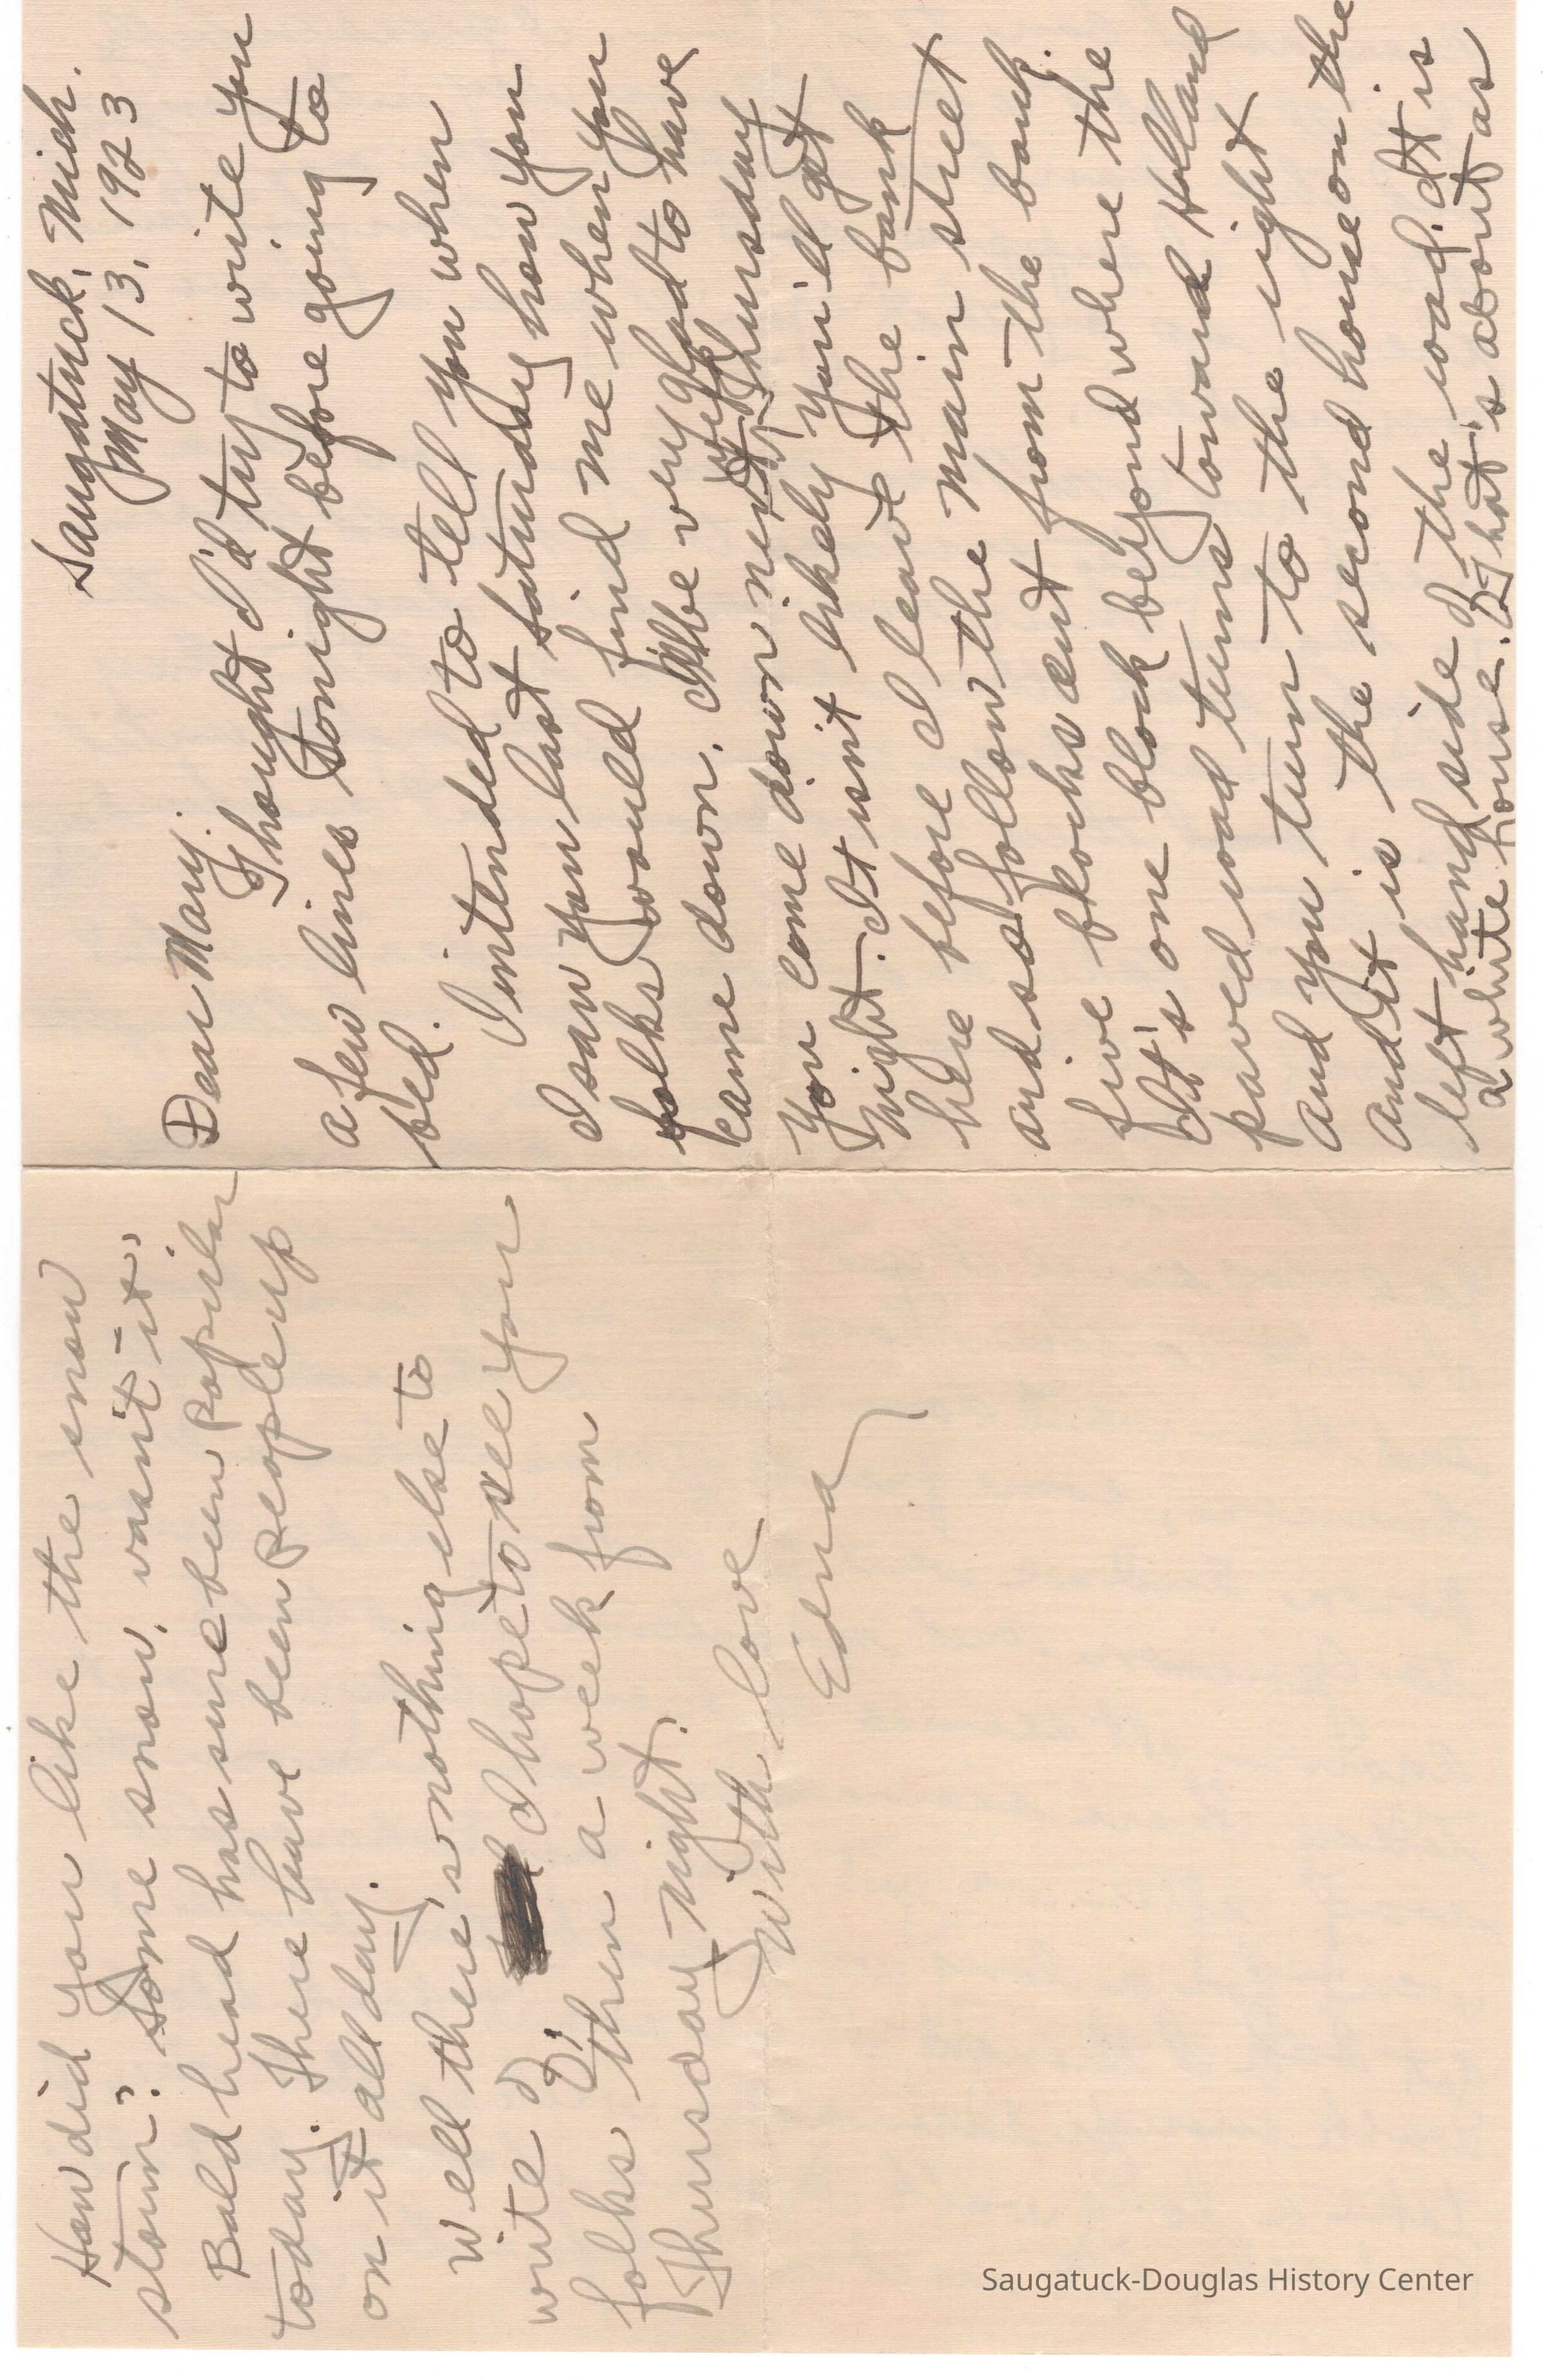 Saugatuck, Mich.
May 13, 1923
Dear Mary:
Thought I'd try to write you
a few lines tonight before going to
bed.
I intended to tell you when
I saw you last Saturday how you
folks would find me when you
came down. I'll be very glad to have
you come down next week Thursday
night. It isn't likely you'll get
here before I leave the bank
and so follow the main street
five blocks east from the bank.
It's one block beyond where the
paved road turns toward Holland
and you turn to the right
and it is the second house on the
left hand side of the road. It is
a white house. That's about as
How did you like the snow
storm? Some snow, wasn't it?
Bald head has sure been popular
today. There have been people up
on it all day.
Well there's nothing else to
write I hope to see you
folks then a week from
Thursday night.
With love
Edna
Saugatuck-Douglas History Center